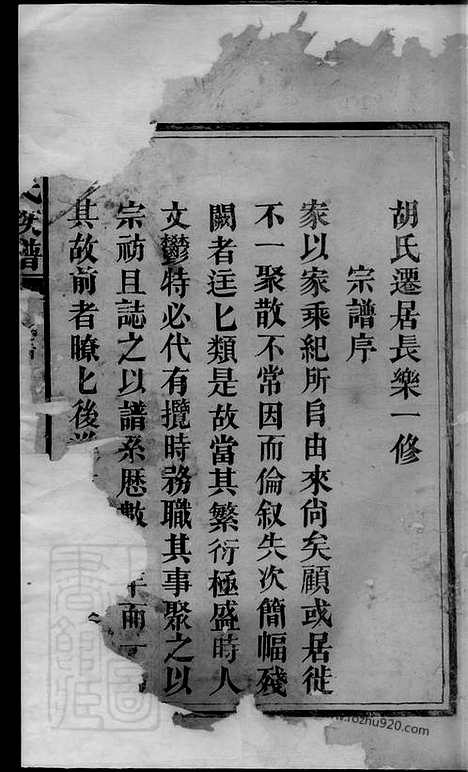 胡氏遷居長樂一修
宗譜序
家以家乘紀所自由來尙矣顧或居徙
不一聚散不常因而倫叙失次簡幅殘
闕者迋匕類是故當其繁衍極盛時人
文鬱特必代有攬時務職其事聚之以
宗祊且誌之以譜系歷數年而
其故前者瞭匕後
氏族譜
www.fozhu920.com